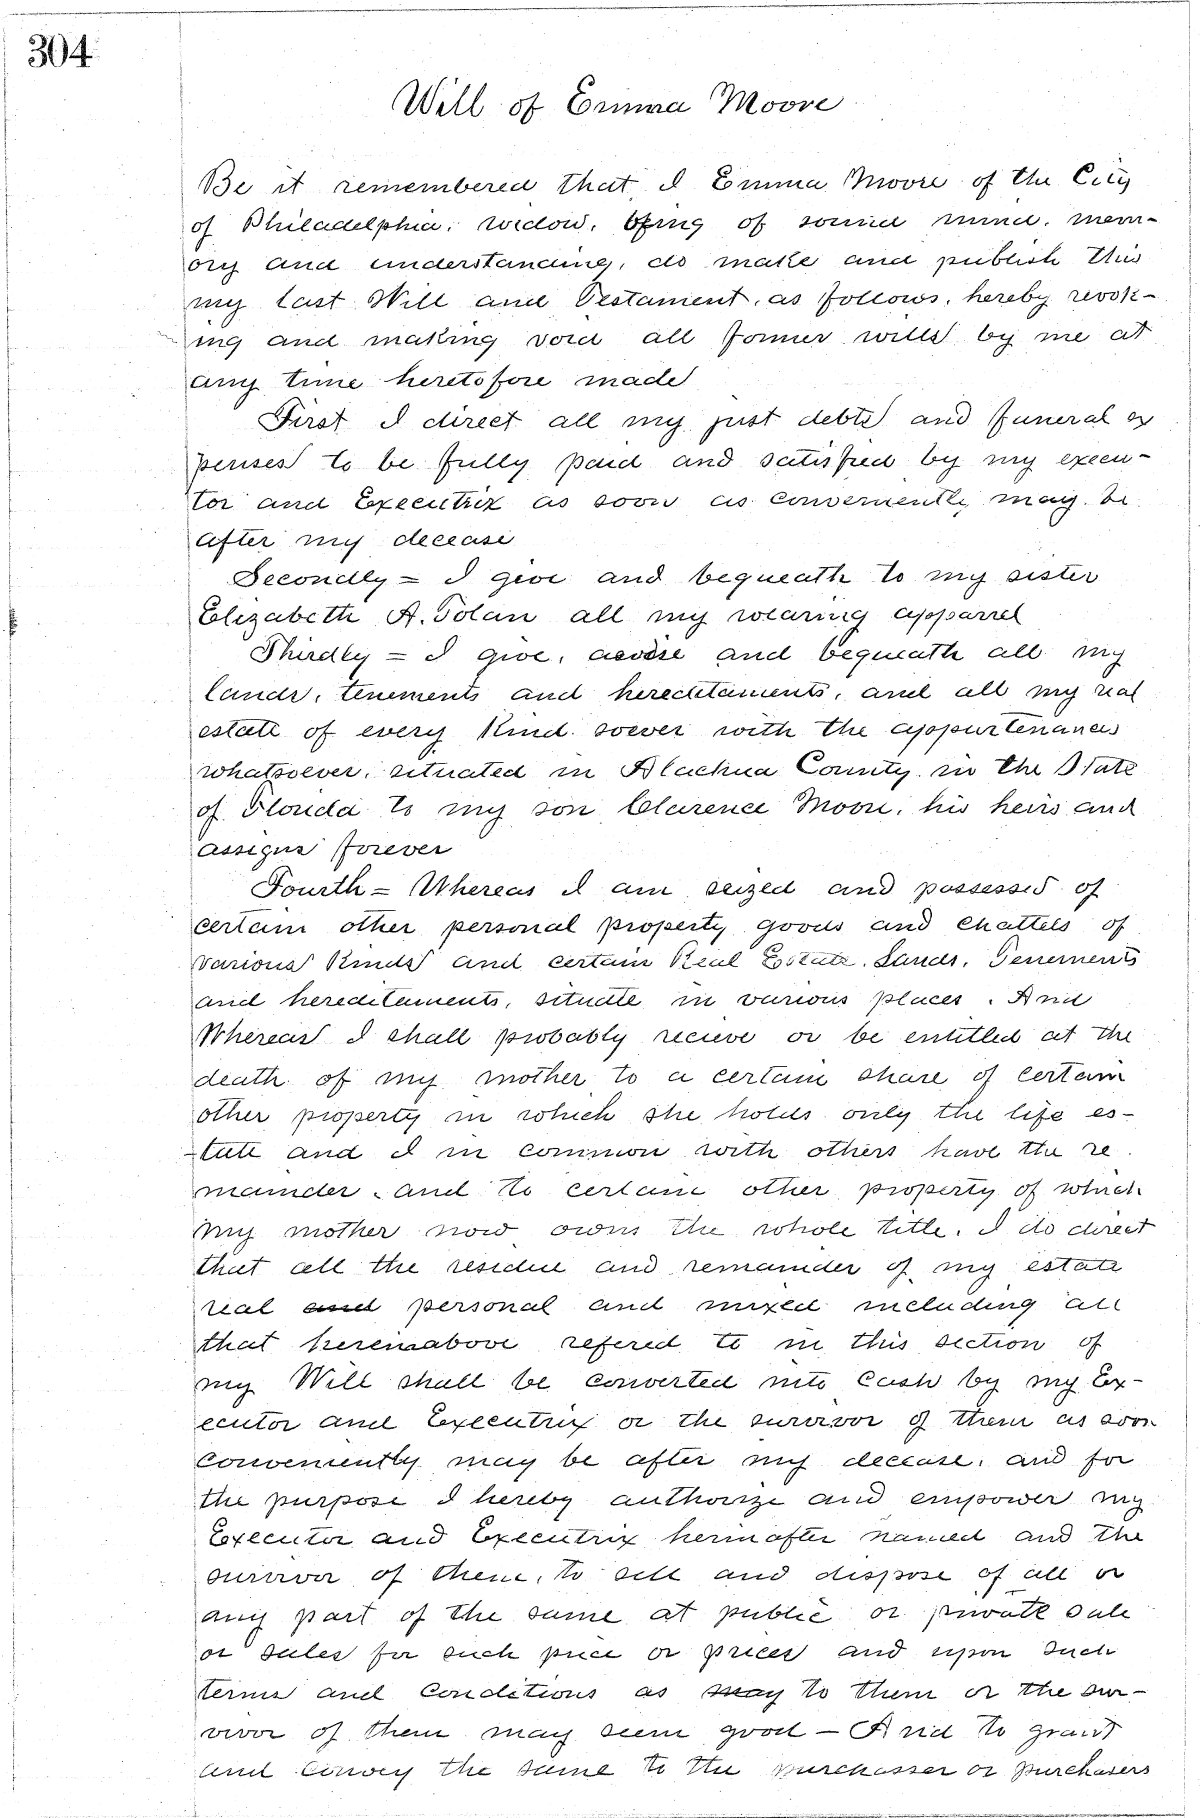 304
Will of Emma Moore
Be it remembered that I Emma Moore of the City
of Philadelphia, widow, being of sound mind, mem-
ory and understanding, do make and publish this
my last Will and Testament, as follows, hereby revok-
ing and making void all former wills by me at
any time heretofore made
First I direct all my just debts and funeral ex
penses to be fully paid and satisfied by my execu-
tor and Executrix as soon as conveniently may be
after my decease
Secondly = I give and bequeath to my sister
Elizabeth A. Tolan all my wearing apparrel
Thirdly = I give, devise and bequeath all my
lands, tenements and hereditaments, and all my real
estate of every kind soever with the appurtenances
whatsoever, situated in Alachua County in the State
of Florida to my son Clarence Moore, his heirs and
assigns forever
Fourth = Whereas I am seized and possessed of
certain other personal property goods and chattels of
various kinds and certain Real Estate, Lands, Tenements
and hereditaments, situate in various places. And
Whereas I shall probably recieve or be entitled at the
death of my mother to a certain share of certain
other property in which she holds only the life es-
-tate and I in common with others have the re
mainder, and to certain other property of which
my mother now owns the whole title. I do direct
that all the residue and remainder of my estate
real and personal and mixed including all
that hereinabove refered to in this section of
my Will shall be converted into cash by my Ex-
ecutor and Executrix or the survivor of them as soon
conveniently may be after my decease, and for
the purpose I hereby authorize and empower my
Executor and Executrix herinafter named and the
survivor of them, to sell and dispose of all or
any part of the same at public or private sale
or sales for such price or prices and upon such
terms and conditions as may to them or the sur-
vivor of them may seem good - And to grant
and convey the same to the purchasser or purchasers